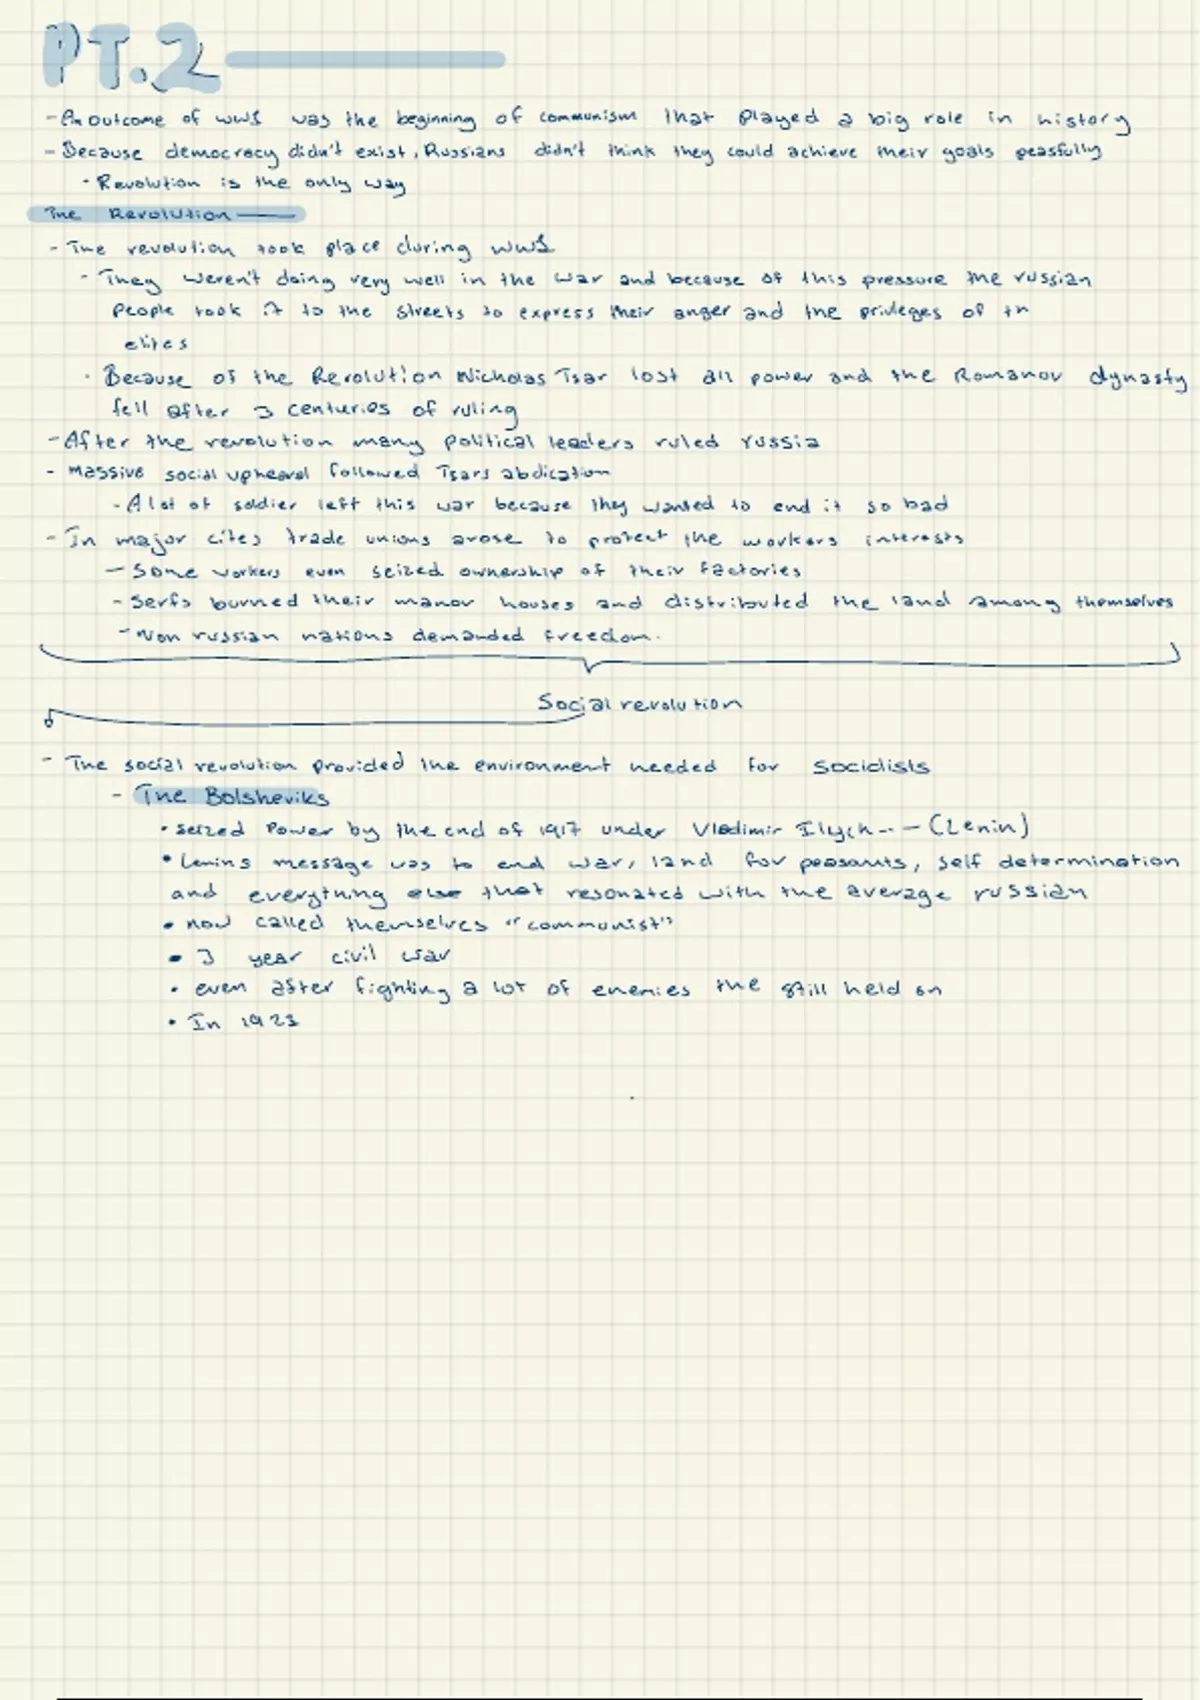 PT.2
- An outcome of WW1 was the beginning of communism that played a big role in history
- Because democracy didn't exist, Russians didn't think they could achieve their goals peasfully
• Revolution is the only way
The Revolution
- The revolution took place during WW1
- They weren't doing very well in the war and because of this pressure the russian
people took it to the streets to express their anger and the privleges of th
elites
• Because of the Revolution Nicholas Tsar lost all power and the Romanov dynasty
fell after 3 centuries of ruling
- After the revolution many political leaders ruled russia
- Massive social upheaval followed Tsars abdication
- A lot of soldier left this war because they wanted to end it so bad
- In major cites trade unions arose to protect the workers interests
- Some workers even seized ownership of their factories
- Serfs burned their manor houses and distributed the land among themselves
- Non russian nations demanded freedom.
Social revolution
- The social revolution provided the environment needed for socialists
- The Bolsheviks
• seized Power by the end of 1917 under Vladimir Ilych -- - (Lenin)
• Lenins message was to end war, land for peasants, self determination
and everything else that resonated with the average russian
• now called themselves "communist"
• 3 year civil war
• even after fighting a lot of enemies the still held on
• In 1921